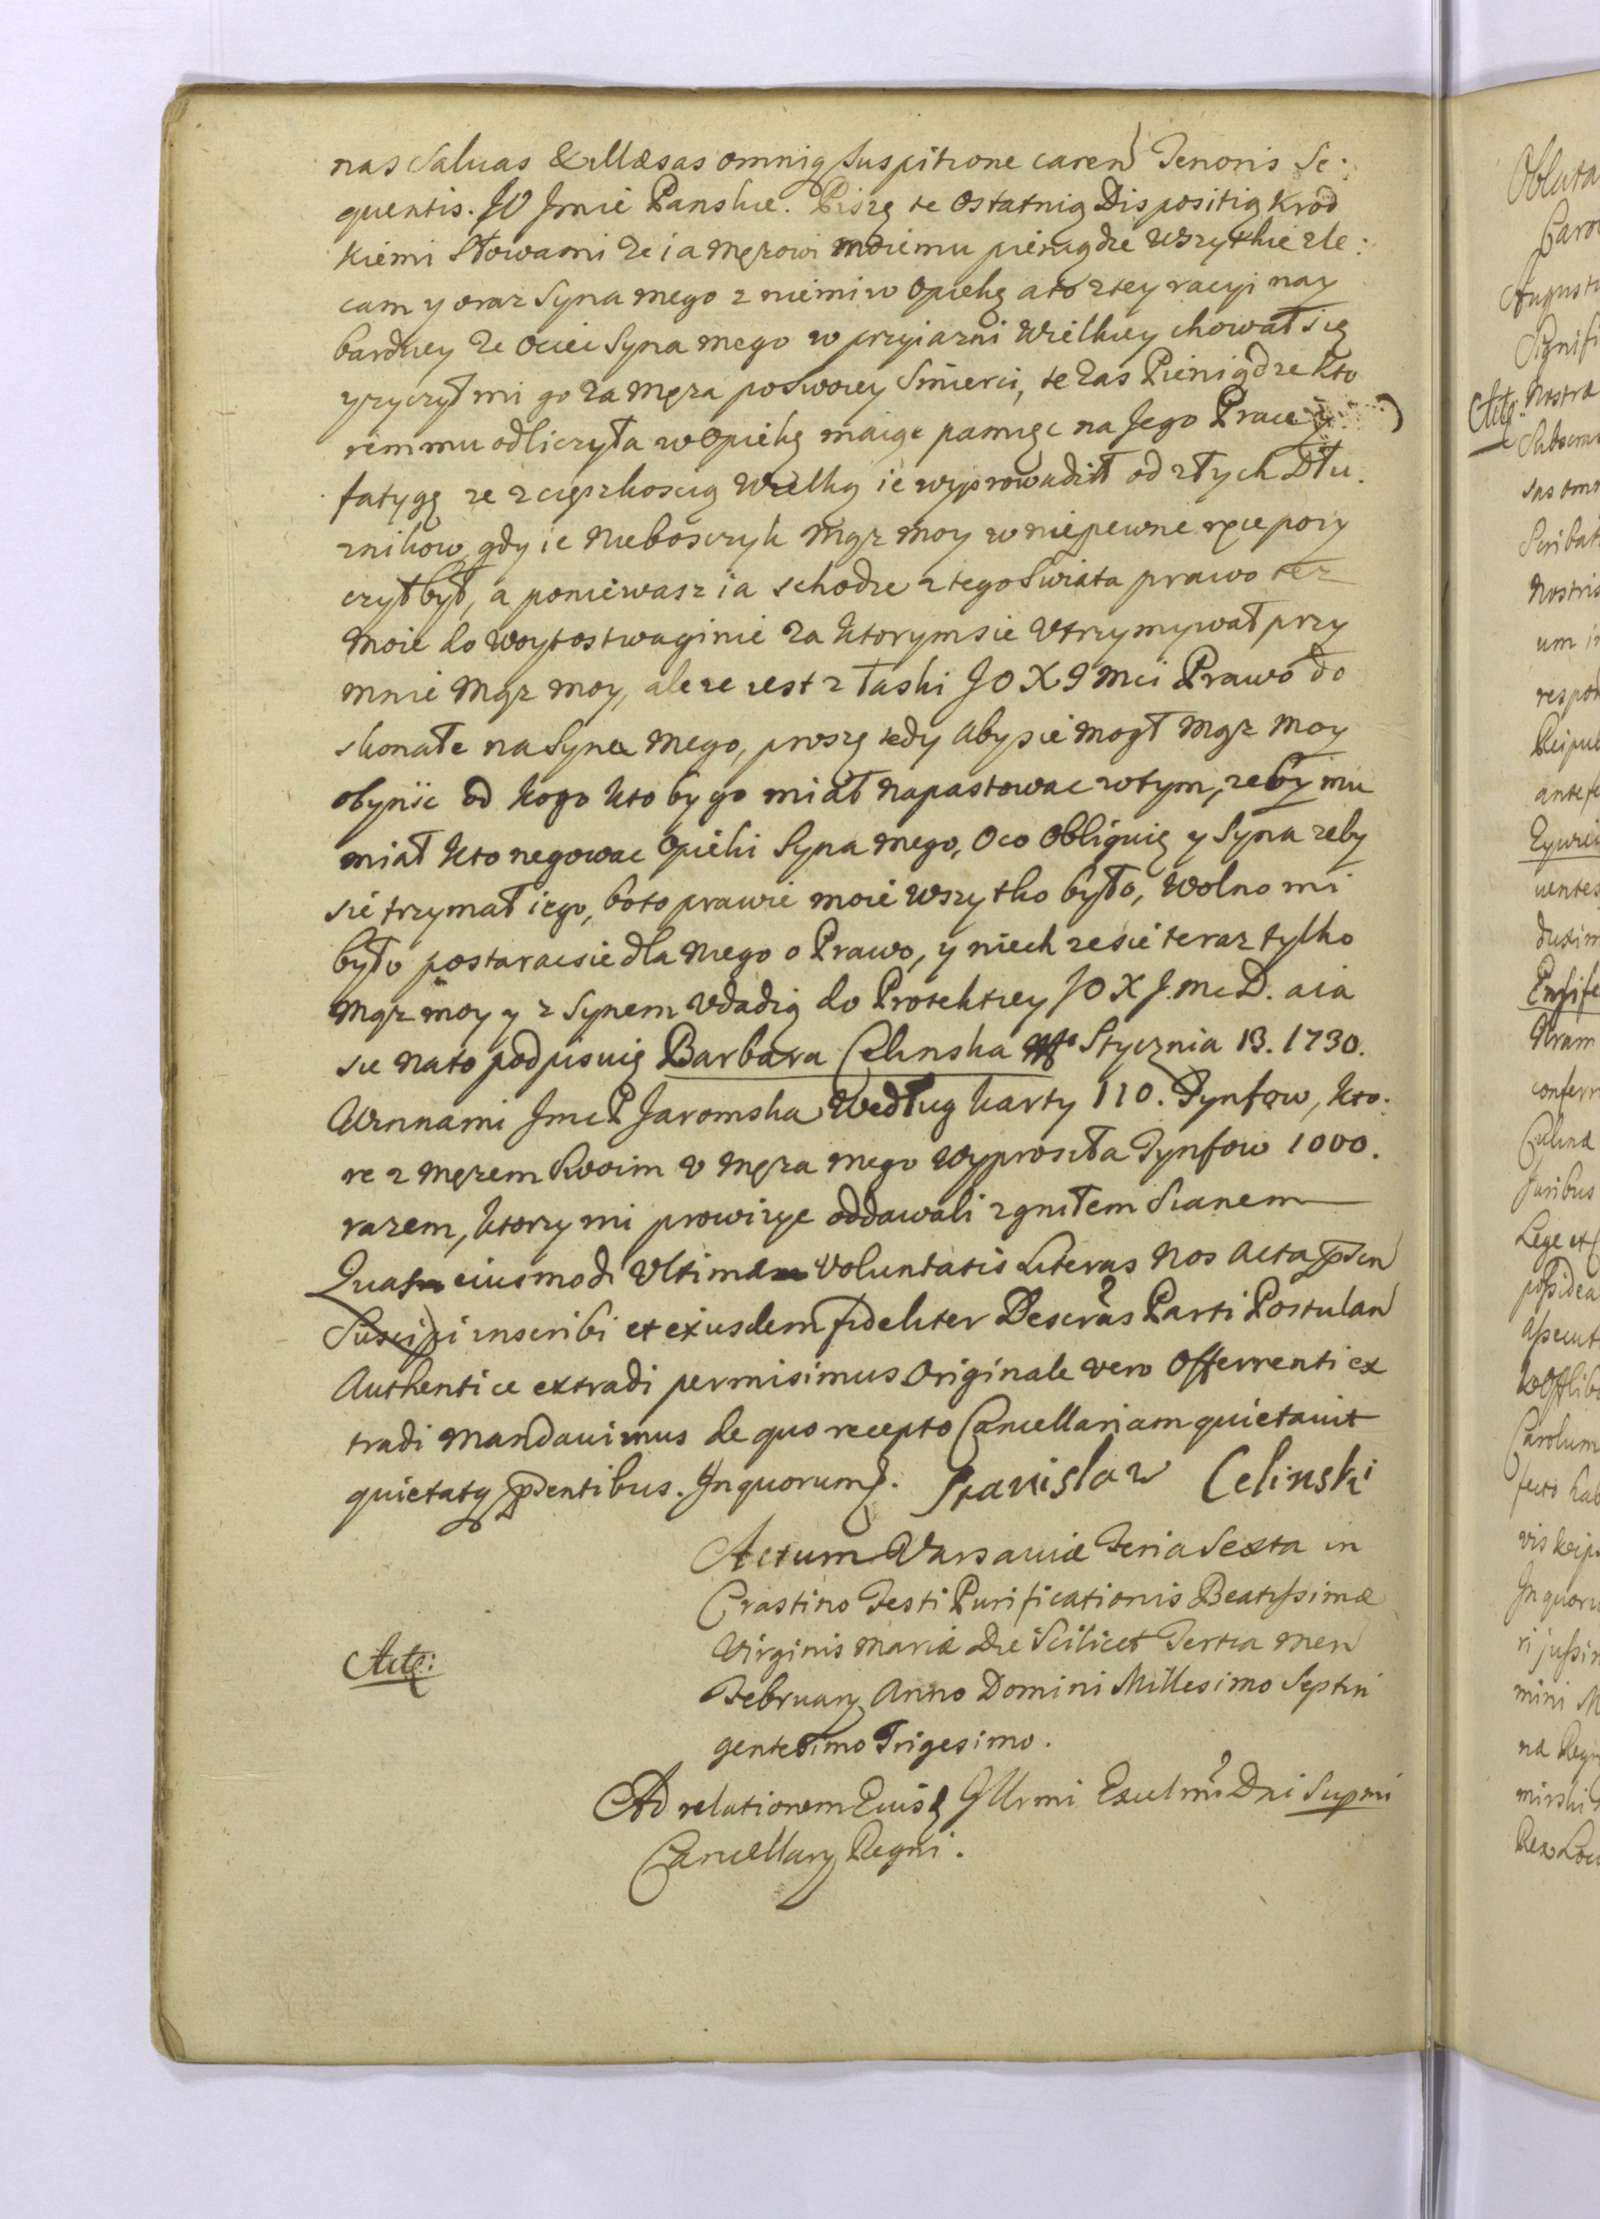 nas Saluas & illæsas omniq suspitione caren Tenoris Se:
quentis. JO Jmie Panskie. Piszę te ostatnią Dispositią krod
kiemi Słowami ze ia męzowi moiemu pieniądze wszytkie zle:
cam y oraz Syna mego z niemi w opiekę a to z tey racyi nay
bardziey ze ociec Syna mego w przyiazni wielkiey chował się
y zyczył mi go za męza po swoiey śmierci, te zas Pieniądze kto
rem mu odliczyła w opiekę maiąc pamięc na Jego Prace y
fatygę ze z cięszkoscią wielką ie wyprowadził od złych Dłu.
znikow, gdy ie nieboszczyk Mąz moy w niepewne ręce pozy
czył był, a poniewasz ia schodze z tego Swiata prawo tez
moie do woytostwa ginie za ktorym sie utrzymywał przy
mnie Mąz moy, ale ze iest z łaski JO X J Mci Prawo do
skonałe na Syna mego, proszę tedy aby sie mogł Mąz moy
obynisc od kogo kto by go miał napastowac w tym, zeby mu
miał kto negowac opieki Syna mego, o co obliguię y Syna zeby
sie trzymał iego, bo to prawie moie wszytko było, wolno mi
było postarac sie dla niego o Prawo, y niech ze sie teraz tylko
Mąz moy y z Synem udadią do Protekcyey JO X J. Mc D. a ia
sie na to podpisuię Barbara Celinska Stycznia 13. 1730.
Winnami Jmc P Jaromska według karty 110. Tynfow, kto.
re z męzem Swoim u męza mego wyprosiła Tynfow 1000.
razem, ktorzy mi prowizye oddawali zgniłem Sianem
Quas eiusmodi ultimæ voluntatis Literas Nos Acta psen
Suscipi inscribi et exiusdem fideliter Descras Parti Postulan
Authentice extradi permisimus Originale vero Offerrenti ex
tradi Mandauimus de quo recepto Cancellariam quietauit
quietatq psentibus. Jn quorum f. Stanisław Celinski
Actum Varsaviæ Feria Sexta in
Crastino Festi Purificationis Beatissimæ
Virginis Mariæ Die Scilicet Tertia Men
Actq:
February Anno Domini Millesimo Septin
gentesimo Trigesimo.
Ad relationem Eiusq Jllrmi Excelmi Dni Supmi
Cancellary Regni.
Obluta
Caro
Augusti
Signifi
Actq: Nostra
Subscrip
sas omn
Scribat
Nostris
um in
respon
Reipub
ante fe
uentes
duxim
conferr
Celinæ
Juribus
Lege et
possidea
assecut
Carolum
facto hab
vis Reip
Jn quoru
ri jussim
mini M
na Regn
mirski
Rex Loc